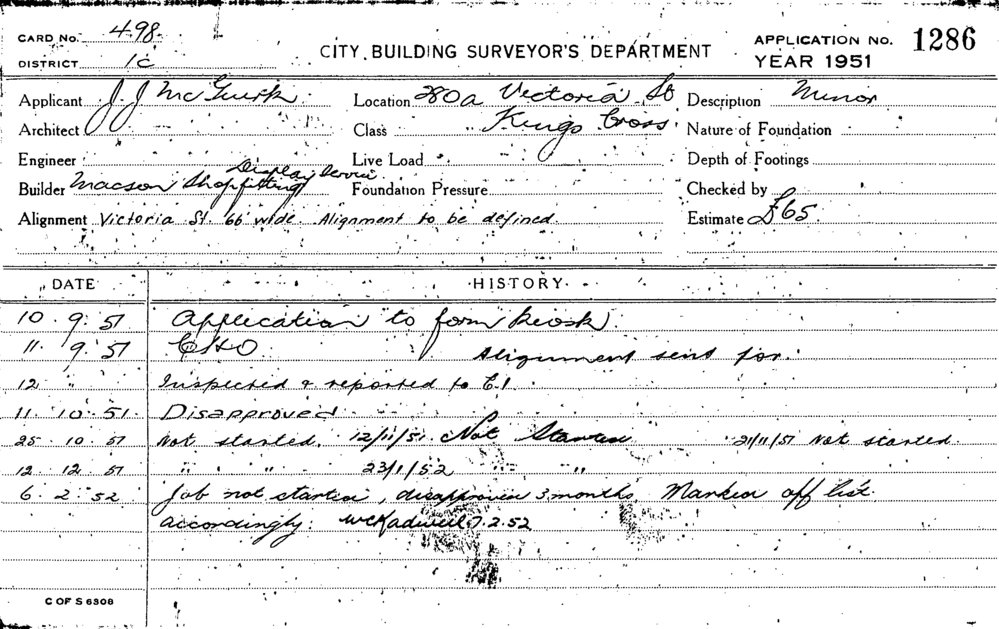 CARD No. 498
CITY BUILDING SURVEYOR'S DEPARTMENT
APPLICATION No. 1286
DISTRICT 1C
YEAR 1951
Applicant J. J McGurk
Location 280a Victoria St
Description Minor
Architect
Class Kings Cross
Nature of Foundation
Engineer
Live Load
Depth of Footings
Display Service
Builder Macson Shopfitting
Foundation Pressure
Checked by
Alignment Victoria St. 66' wide. Alignment to be defined
Estimate £65
DATE HISTORY
10. 9. 51 Application to form kiosk.
11. 9. 51 CHO Alignment sent for.
12 " Inspected & reported to C.I.
11. 10. 51. Disapproved
25. 10. 51 Not started. 12/11/51. Not Started 21/11/51 Not started.
12. 12. 51 " " 23/1/52 " "
6. 2. 52 Job not started, disapproved 3 months. Marked off list
accordingly: 7.2.52
C OF S 6308